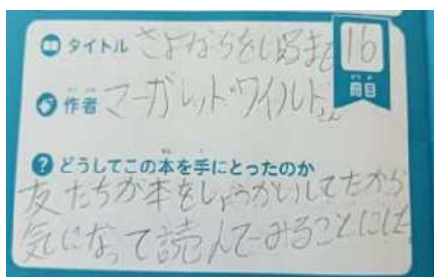 タイトル さよならをいえるまで 16
冊目
作者 マーガレット・ワイルドさん
どうしてこの本を手にとったのか
友たちが本をしょうかいしてたから
気になって読んでみることにした